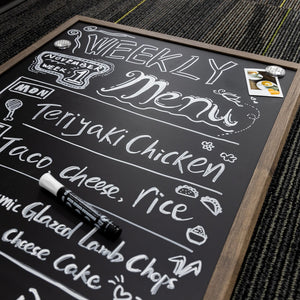 WEEKLY
NOVEMBER
WEEK 1
Menu
MON
Teriyaki Chicken
Taco, cheese, rice
Glazed Lamb Chops
Cheese Cake